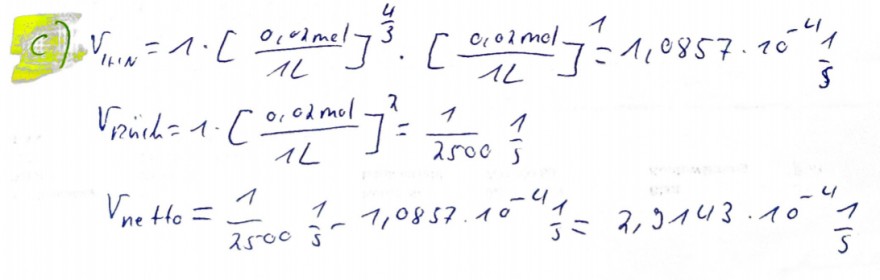 c) V_HIN = 1 · [0,02mol / 1L]^(4/3) · [0,02mol / 1L]^1 = 1,0857 · 10^-4 1/s
V_Rück = 1 · [0,02mol / 1L]^2 = 1/2500 1/s
V_netto = 1/2500 1/s - 1,0857 · 10^-4 1/s = 2,9143 · 10^-4 1/s